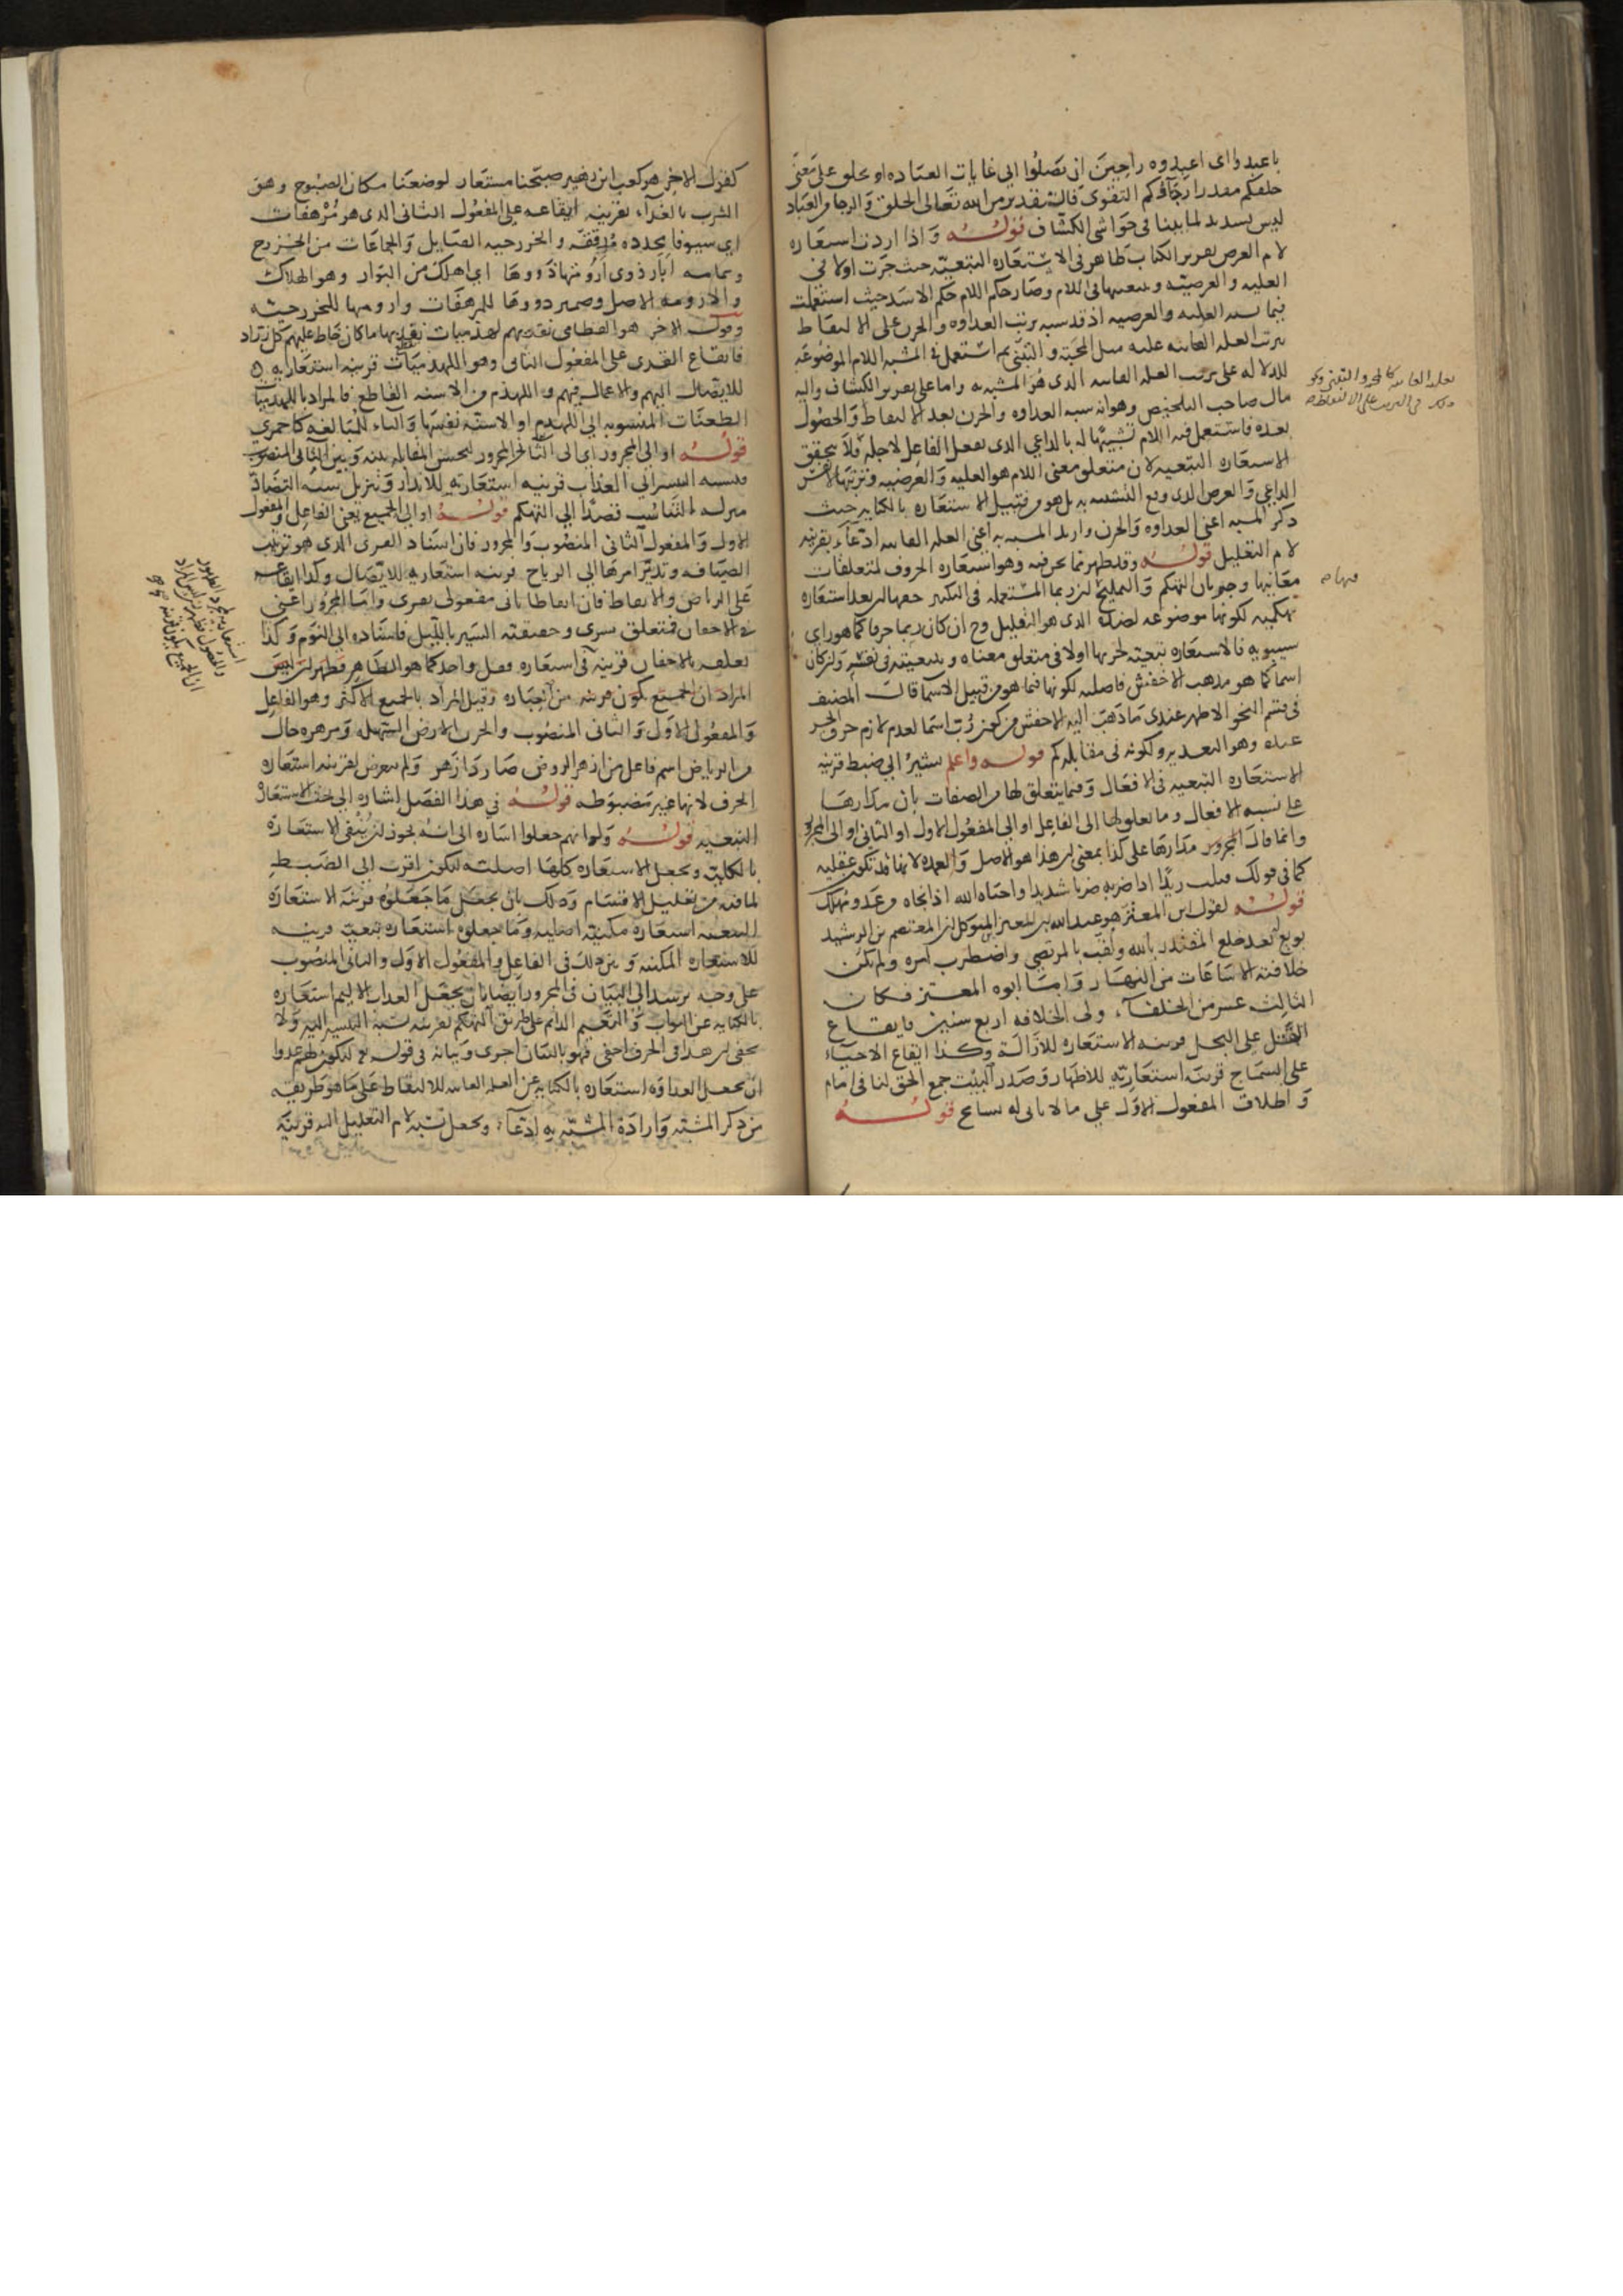 باعبدوا اى اعبدوه راجين ان تصلوا الى غايات العباده او بخلق على معنى
خلقكم مقدرا رجاؤكم التقوى فالتقدير من الله تعالى الخلق والرجا من العباد
ليس بسديد لما بينا فى حواشى الكشاف قوله واذا اردت استعاره
لام الغرض تقرير الكتاب ظاهر فى الاستعاره التبعيه حيث جرت اولا فى
العليه والغرضيه وبتبعيتها فى اللام وصار حكم اللام حكم الاسد حيث استعملت
فيما يشبه العليه والغرضيه اذ قد شبه ترتب العداوه والحزن على الالتقاط
بترتب العله الغائيه عليه مثل المحبه والتبنى ثم استعمل فى المشبه اللام الموضوعه
للدلاله على ترتب العله الغائيه الذى هو المشبه به واما على تقرير الكشاف واليه
مال صاحب التلخيص وهو انه شبه العداوه والحزن بعد الالتقاط والحصول
بعده فاستعمل فيه اللام تشبيها له بالداعى الذى يفعل الفاعل لاجله فلا يتحقق
الاستعاره التبعيه لان متعلق معنى اللام هو العليه والغرضيه وترتبها لا نفس
الداعى والغرض الذى وقع التشبيه به بل هو من قبيل الاستعاره بالكنايه حيث
ذكر المشبه اعنى العداوه والحزن واريد المشبه به اعنى العله الغائيه ادعاء بقرينه
لام التعليل قوله وقد ظهر مما نحن فيه وهو استعاره الحروف لمتعلقات
معانيها وجريان التهكم والتمليح ان ربما المستعمله فى التكثير حقها ان تعد استعاره
تهكميه لكونها موضوعه لضد الذى هو التقليل وح ان كان ربما حرفا كما هو راى
سيبويه فالاستعاره تبعيه لجريها اولا فى متعلق معناه وبتبعيته فى نفسه وان كان
اسما كما هو مذهب الاخفش فاصليه لكونها فيما هو من قبيل الاسما قال المصنف
فى قسم النحو الاظهر عندى ما ذهب اليه الاخفش من كون رب اسما لعدم لازم حرف الجر
عنده وهو التعديه ولكونه فى مقابله كم قوله واعلم يشير الى ضبط قرينه
الاستعاره التبعيه فى الافعال وفيما يتعلق لها من الصفات بان مدارها
على نسبه الافعال وما تعلق لها الى الفاعل او الى المفعول الاول او الثانى او الى المجرور
وانما قال مدارها على كذا بمعنى ان هذا هو الاصل والعمده لانها قد تكون عقليه
كما فى قولك قتلت زيدا اذا ضربه ضربا شديدا واحياه الله اذا نجاه من عدو مهلك
قوله كقول ابن المعتز هو عبد الله بن المعتز بن المتوكل بن المعتصم بن الرشيد
بويع بعد خلع المقتدر بالله ولقب بالمرتضى واضطرب امره ولم يكن
خلافته الا ساعات من النهار واما ابوه المعتز فكان
الثالث عشر من الخلفآء ولى الخلافه اربع سنين فايقاع
القتل على البخل قرينه الاستعاره للازالة وكذا ايقاع الاحياء
على السماح قرينة استعارية للاظهار وصدر البيت جمع الحق لنا فى امام
واطلاق المفعول الاول على ما لا ثانى له تسامح قوله
تعليه الغائيه كالمحبه والتبنى وكو
فيها
كقول الاخر هو كعب ابن زهير صبحنا مستعار لوضعنا مكان الصبوح وهو
الشرب بالغدآء بقرينه ايقاعه على المفعول الثانى الذى هو مرهفات
اى سيوفا محدده مرققه والخزرجيه القبايل والجماعات من الخزرج
وتمامه ابار ذوى ارومتها ذووها اى اهلك من البوار وهو الهلاك
والارومه الاصل وضمير ذووها للمرهفات وارومتها للخزرجيه
وقول الاخر هو القطامى نقريهم لهذميات نقد بها ما كان خاط عليهم كل زراد
فايقاع القرى على المفعول الثانى وهو اللهذميات قرينه استعاريه
للايصال اليهم والاعمال فيهم واللهذم من الاسنه القاطع فالمراد باللهذميات
الطعنات المنسوبه الى اللهذم او الاسنه نفسها والياء للمبالغه كاحمرى
قوله او الى المجرور اى الى الثانى المجرور ليحسن المقابله بينه وبين الثانى المنصوب
فنسبه التبشير الى العذاب قرينه استعاريه للانذار وتنزيل نسبه التضاد
منزله التناسب قصدا الى التهكم قوله او الى الجميع يعنى الفاعل والمفعول
الاول والمفعول الثانى المنصوب والمجرور فان اسناد القرى الذى هو ترتيب
الضيافه وتدبير امرها الى الرياح قرينه استعاريه للايصال وكذا ايقاعه
على الرياض والايقاظ فان ايقاظا ثانى مفعولى تقرى واما المجرور اعنى
فى الاجفان فمتعلق بسرى وحقيقته السير بالليل فاسناده الى النوم وكذا
تعلقه بالاجفان قرينه فى استعاره فعل واحد كما هو الظاهر فظهر ان ليس
المراد ان الجميع يكون قرينه من العباره وقيل المراد بالجميع الاكثر وهو الفاعل
والمفعول الاول والثانى المنصوب والحزن الارض السهله ومزهره حال
من الرياض اسم فاعل من ازهر الروض صار ذا زهر ولم يتعرض لقرينه استعاره
الحرف لانها غير مضبوطه قوله فى هذا الفصل اشاره الى بحث الاستعاره
التبعيه قوله ولو انهم جعلوا اشاره الى انه يجوز ان ينفى الاستعارة
بالكليه وتجعل الاستعاره كلها اصليه ليكون اقرب الى الضبط
لما فيه من تقليل الاقسام وذلك بان يجعل ما جعلوه قرينه الاستعارة
التبعيه استعاره مكنيه اصليه وما جعلوه استعاره تبعيه قرينه
للاستعاره المكنيه وبين ذلك فى الفاعل والمفعول الاول والثانى المنصوب
على وجه يرشد الى البيان فى المجرور ايضا بان يجعل العذاب الاليم استعاره
بالكنايه عن الثواب والنعيم الدائم على طريق التهكم بقرينه نسبه التبشير اليه ولا
يخفى ان هذا فى الحرف اخفى فهو بالبيان اجرى وبيانه فى قوله تع ليكون لهم عدوا
ان يجعل العداوه استعاره بالكنايه عن العله الغائيه للالتقاط على ما هو طريقه
من ذكر المشبه وارادة المشبه به ادعآء ويجعل نسبه لام التعليل اليه قرينة